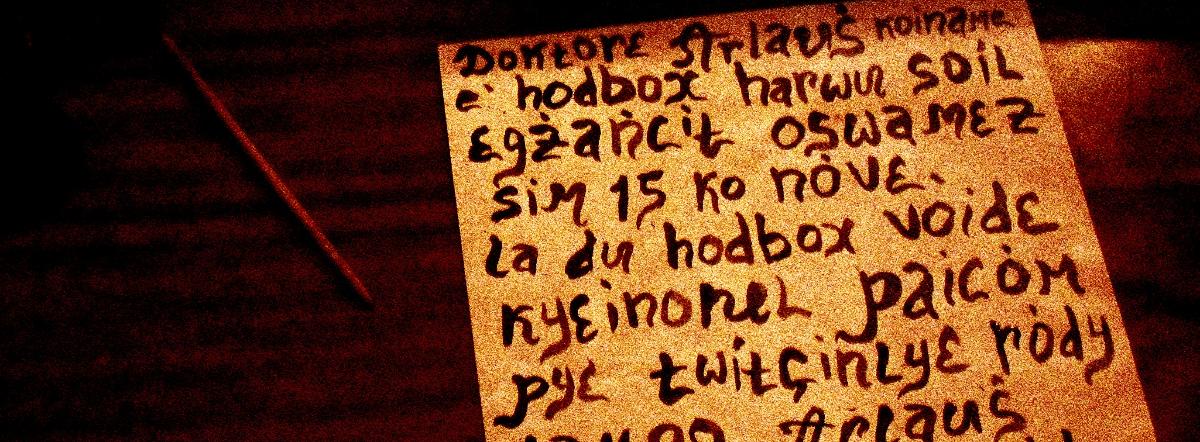 Doktore Arlauś koiname
e' hodbox harwu soil
egżàńcit oswamez
sim 15 ko nòve.
la du hodbox voide
kyeinonel paicòm
pye twitçinlye ròdy
Arlauś